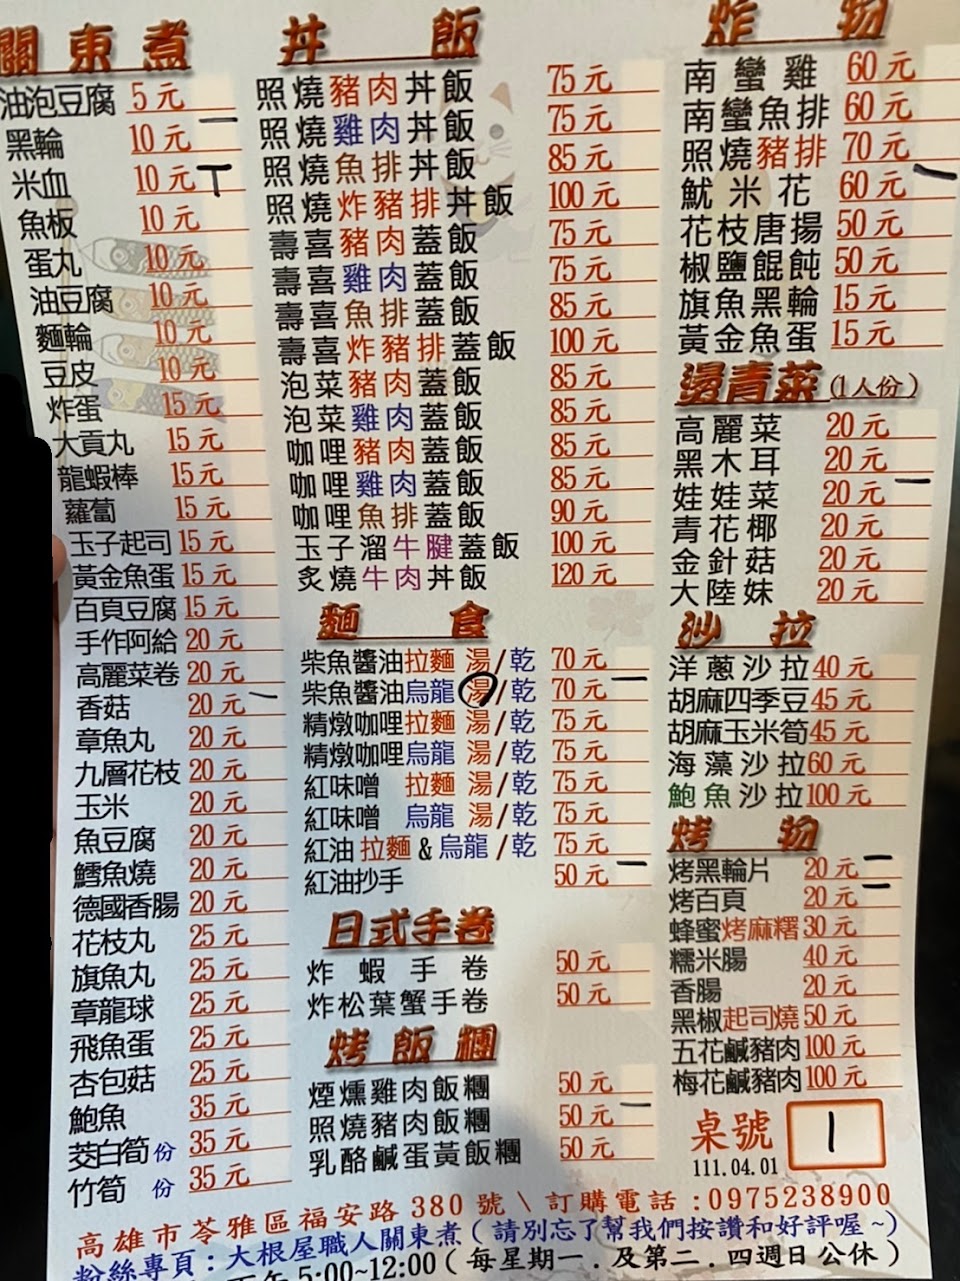 關東煮
油泡豆腐 5元
黑輪 10元 一
米血 10元 T
魚板 10元
蛋丸 10元
油豆腐 10元
麵輪 10元
豆皮 10元
炸蛋 15元
大貢丸 15元
龍蝦棒 15元
蘿蔔 15元
玉子起司 15元
黃金魚蛋 15元
百頁豆腐 15元
手作阿給 20元
高麗菜卷 20元
香菇 20元 一
章魚丸 20元
九層花枝 20元
玉米 20元
魚豆腐 20元
鱈魚燒 20元
德國香腸 20元
花枝丸 25元
旗魚丸 25元
章龍球 25元
飛魚蛋 25元
杏包菇 25元
鮑魚 35元
茭白筍 份 35元
竹筍 份 35元
丼飯
照燒豬肉丼飯 75元
照燒雞肉丼飯 75元
照燒魚排丼飯 85元
照燒炸豬排丼飯 100元
壽喜豬肉蓋飯 75元
壽喜雞肉蓋飯 75元
壽喜魚排蓋飯 85元
壽喜炸豬排蓋飯 100元
泡菜豬肉蓋飯 85元
泡菜雞肉蓋飯 85元
咖哩豬肉蓋飯 85元
咖哩雞肉蓋飯 85元
咖哩魚排蓋飯 90元
玉子溜牛腱蓋飯 100元
炙燒牛肉丼飯 120元
麵食
柴魚醬油拉麵 湯/乾 70元
柴魚醬油烏龍 湯/乾 70元 一
精燉咖哩拉麵 湯/乾 75元
精燉咖哩烏龍 湯/乾 75元
紅味噌 拉麵 湯/乾 75元
紅味噌 烏龍 湯/乾 75元
紅油拉麵&烏龍/乾 75元
紅油抄手 50元 一
日式手卷
炸蝦手卷 50元
炸松葉蟹手卷 50元
烤飯糰
煙燻雞肉飯糰 50元
照燒豬肉飯糰 50元 一
乳酪鹹蛋黃飯糰 50元
炸物
南蠻雞 60元
南蠻魚排 60元
照燒豬排 70元
魷米花 60元 一
花枝唐揚 50元
椒鹽餛飩 50元
旗魚黑輪 15元
黃金魚蛋 15元
燙青菜(1人份)
高麗菜 20元
黑木耳 20元
娃娃菜 20元 一
青花椰 20元
金針菇 20元
大陸妹 20元
沙拉
洋蔥沙拉 40元
胡麻四季豆 45元
胡麻玉米筍 45元
海藻沙拉 60元
鮑魚沙拉 100元
烤物
烤黑輪片 20元 一
烤百頁 20元 一
蜂蜜烤麻糬 30元
糯米腸 40元
香腸 20元
黑椒起司燒 50元
五花鹹豬肉 100元
梅花鹹豬肉 100元
桌號 1
111.04.01
高雄市苓雅區福安路380號\訂購電話:0975238900
粉絲專頁:大根屋職人關東煮(請別忘了幫我們按讚和好評喔~)
下午5:00~12:00(每星期一.及第二.四週日公休)